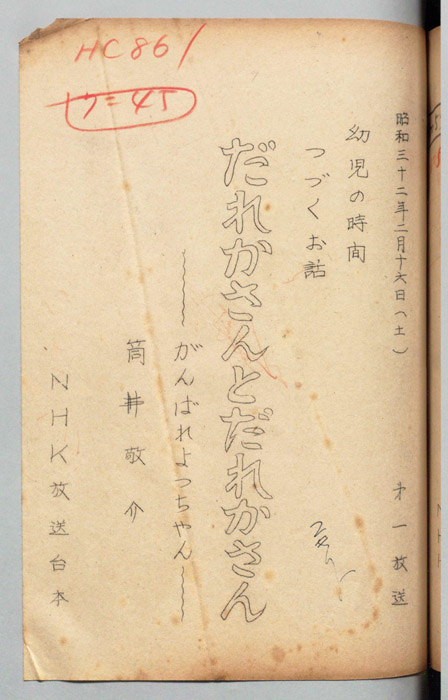 HC861
ウ=45
昭和三十二年二月十六日(土)
才一放送
幼児の時間
つづくお話
だれかさんとだれかさん
〜〜〜がんばれよっちゃん〜〜〜
筒井敬介
NHK放送台本